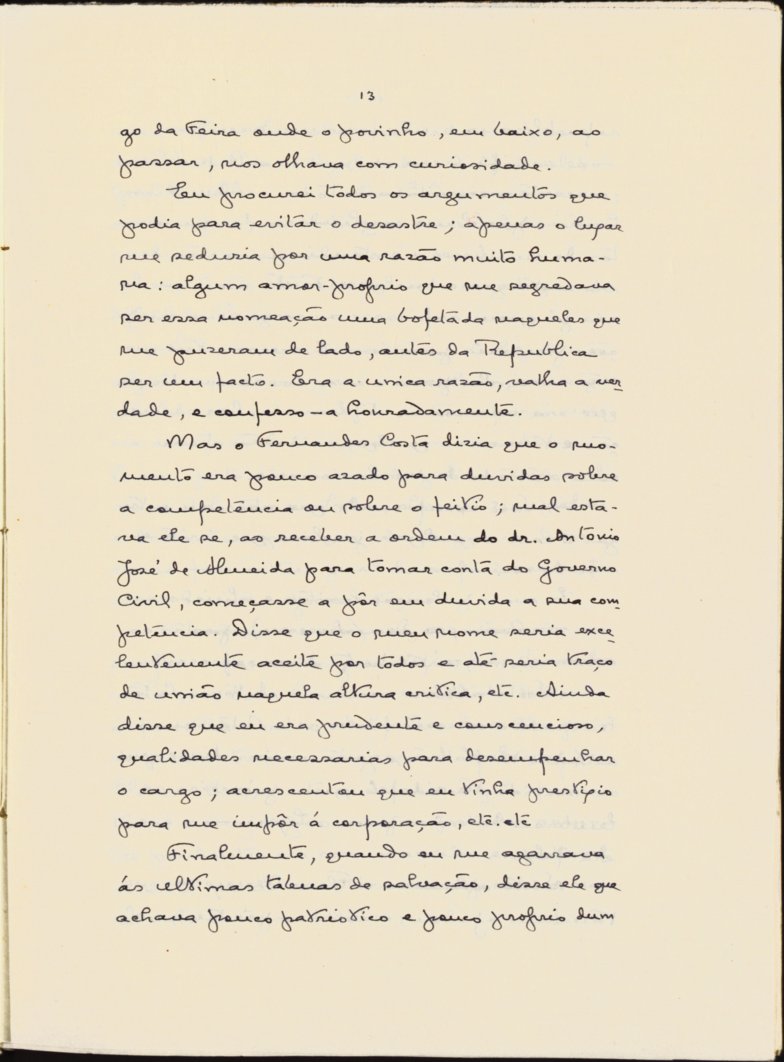 13
go da Feira onde o povinho, em baixo, ao
passar, nos olhava com curiosidade.
Eu procurei todos os argumentos que
podia para evitar o desastre; apenas o lugar
me seduzia por uma razão muito huma-
na: algum amor-proprio que me segredava
ser essa nomeação uma bofetada naqueles que
me puzeram de lado, antes da Republica
ser um facto. Era a unica razão, valha a ver-
dade, e confesso-a honradamente.
Mas o Fernandes Costa dizia que o mo-
mento era pouco azado para duvidas sobre
a competência ou sobre o feitio; mal esta-
va ele se, ao receber a ordem do dr. António
José de Almeida para tomar conta do Governo
Civil, começasse a pôr em duvida a sua com-
petência. Disse que o meu nome seria exce-
lentemente aceite por todos e até seria traço
de união naquela altura critica, etc. Ainda
disse que eu era prudente e conscencioso,
qualidades necessarias para desempenhar
o cargo; acrescentou que eu tinha prestigio
para me impôr á corporação, etc. etc
Finalmente, quando eu me agarrava
ás ultimas tabuas de salvação, disse ele que
achava pouco patriotico e pouco proprio dum